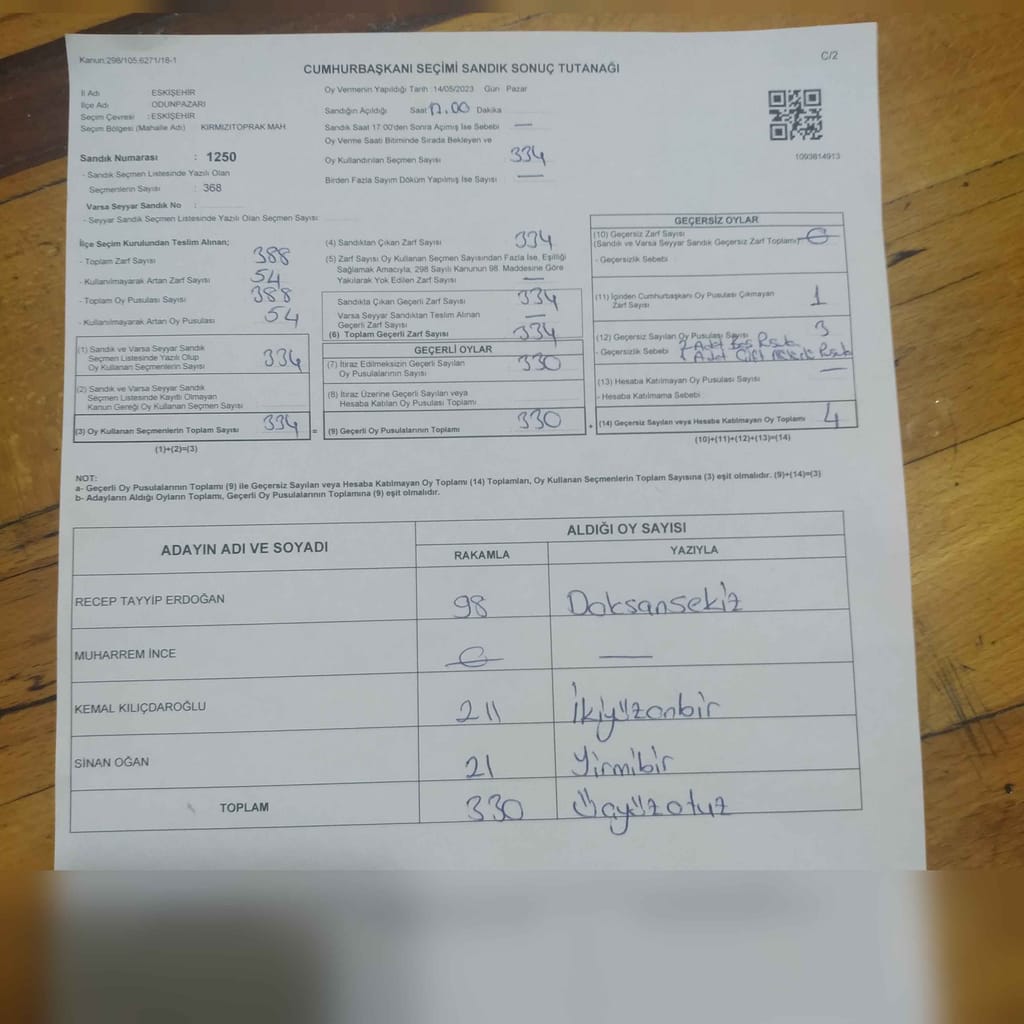 Kanun:298/105.6271/18-1
C/2
CUMHURBAŞKANI SEÇİMİ SANDIK SONUÇ TUTANAĞI
İl Adı ESKİŞEHİR
İlçe Adı ODUNPAZARI
Seçim Çevresi : ESKİŞEHİR
Seçim Bölgesi (Mahalle Adı) KIRMIZITOPRAK MAH
Sandık Numarası : 1250
- Sandık Seçmen Listesinde Yazılı Olan
Seçmenlerin Sayısı : 368
Varsa Seyyar Sandık No :
- Seyyar Sandık Seçmen Listesinde Yazılı Olan Seçmen Sayısı
Oy Vermenin Yapıldığı Tarih :14/05/2023 Gün Pazar
Sandığın Açıldığı Saat 17.00 Dakika
Sandık Saat 17:00'den Sonra Açımış İse Sebebi —
Oy Verme Saati Bitiminde Sırada Bekleyen ve
Oy Kullandırılan Seçmen Sayısı : 334
Birden Fazla Sayım Döküm Yapılmış İse Sayısı : —
1093814913
İlçe Seçim Kurulundan Teslim Alınan;
- Toplam Zarf Sayısı 388
- Kullanılmayarak Artan Zarf Sayısı 54
- Toplam Oy Pusulası Sayısı 388
- Kullanılmayarak Artan Oy Pusulası 54
(1) Sandık ve Varsa Seyyar Sandık
Seçmen Listesinde Yazılı Olup
Oy Kullanan Seçmenlerin Sayısı 334
(2) Sandık ve Varsa Seyyar Sandık
Seçmen Listesinde Kayıtlı Olmayan
Kanun Gereği Oy Kullanan Seçmen Sayısı
(3) Oy Kullanan Seçmenlerin Toplam Sayısı 334 =
(1)+(2)=(3)
(4) Sandıktan Çıkan Zarf Sayısı 334
(5) Zarf Sayısı Oy Kullanan Seçmen Sayısından Fazla İse, Eşitliği
Sağlamak Amacıyla, 298 Sayılı Kanunun 98. Maddesine Göre
Yakılarak Yok Edilen Zarf Sayısı —
Sandıkta Çıkan Geçerli Zarf Sayısı 334
Varsa Seyyar Sandıktan Teslim Alınan
Geçerli Zarf Sayısı —
(6) Toplam Geçerli Zarf Sayısı 334
GEÇERLİ OYLAR
(7) İtiraz Edilmeksizin Geçerli Sayılan
Oy Pusulalarının Sayısı 330
(8) İtiraz Üzerine Geçerli Sayılan veya
Hesaba Katılan Oy Pusulası Toplamı
(9) Geçerli Oy Pusulalarının Toplamı 330 +
GEÇERSİZ OYLAR
(10) Geçersiz Zarf Sayısı
(Sandık ve Varsa Seyyar Sandık Geçersiz Zarf Toplamı)
- Geçersizlik Sebebi
(11) İçinden Cumhurbaşkanı Oy Pusulası Çıkmayan
Zarf Sayısı 1
(12) Geçersiz Sayılan Oy Pusulası Sayısı 3
- Geçersizlik Sebebi
(13) Hesaba Katılmayan Oy Pusulası Sayısı —
- Hesaba Katılmama Sebebi
(14) Geçersiz Sayılan veya Hesaba Katılmayan Oy Toplamı 4
(10)+(11)+(12)+(13)=(14)
NOT:
a- Geçerli Oy Pusulalarının Toplamı (9) ile Geçersiz Sayılan veya Hesaba Katılmayan Oy Toplamı (14) Toplamları, Oy Kullanan Seçmenlerin Toplam Sayısına (3) eşit olmalıdır. (9)+(14)=(3)
b- Adayların Aldığı Oyların Toplamı, Geçerli Oy Pusulalarının Toplamına (9) eşit olmalıdır.
ADAYIN ADI VE SOYADI
ALDIĞI OY SAYISI
RAKAMLA YAZIYLA
RECEP TAYYİP ERDOĞAN 98 Doksansekiz
MUHARREM İNCE —
KEMAL KILIÇDAROĞLU 211 İkiyüzonbir
SİNAN OĞAN 21 Yirmibir
TOPLAM 330 Üçyüzotuz